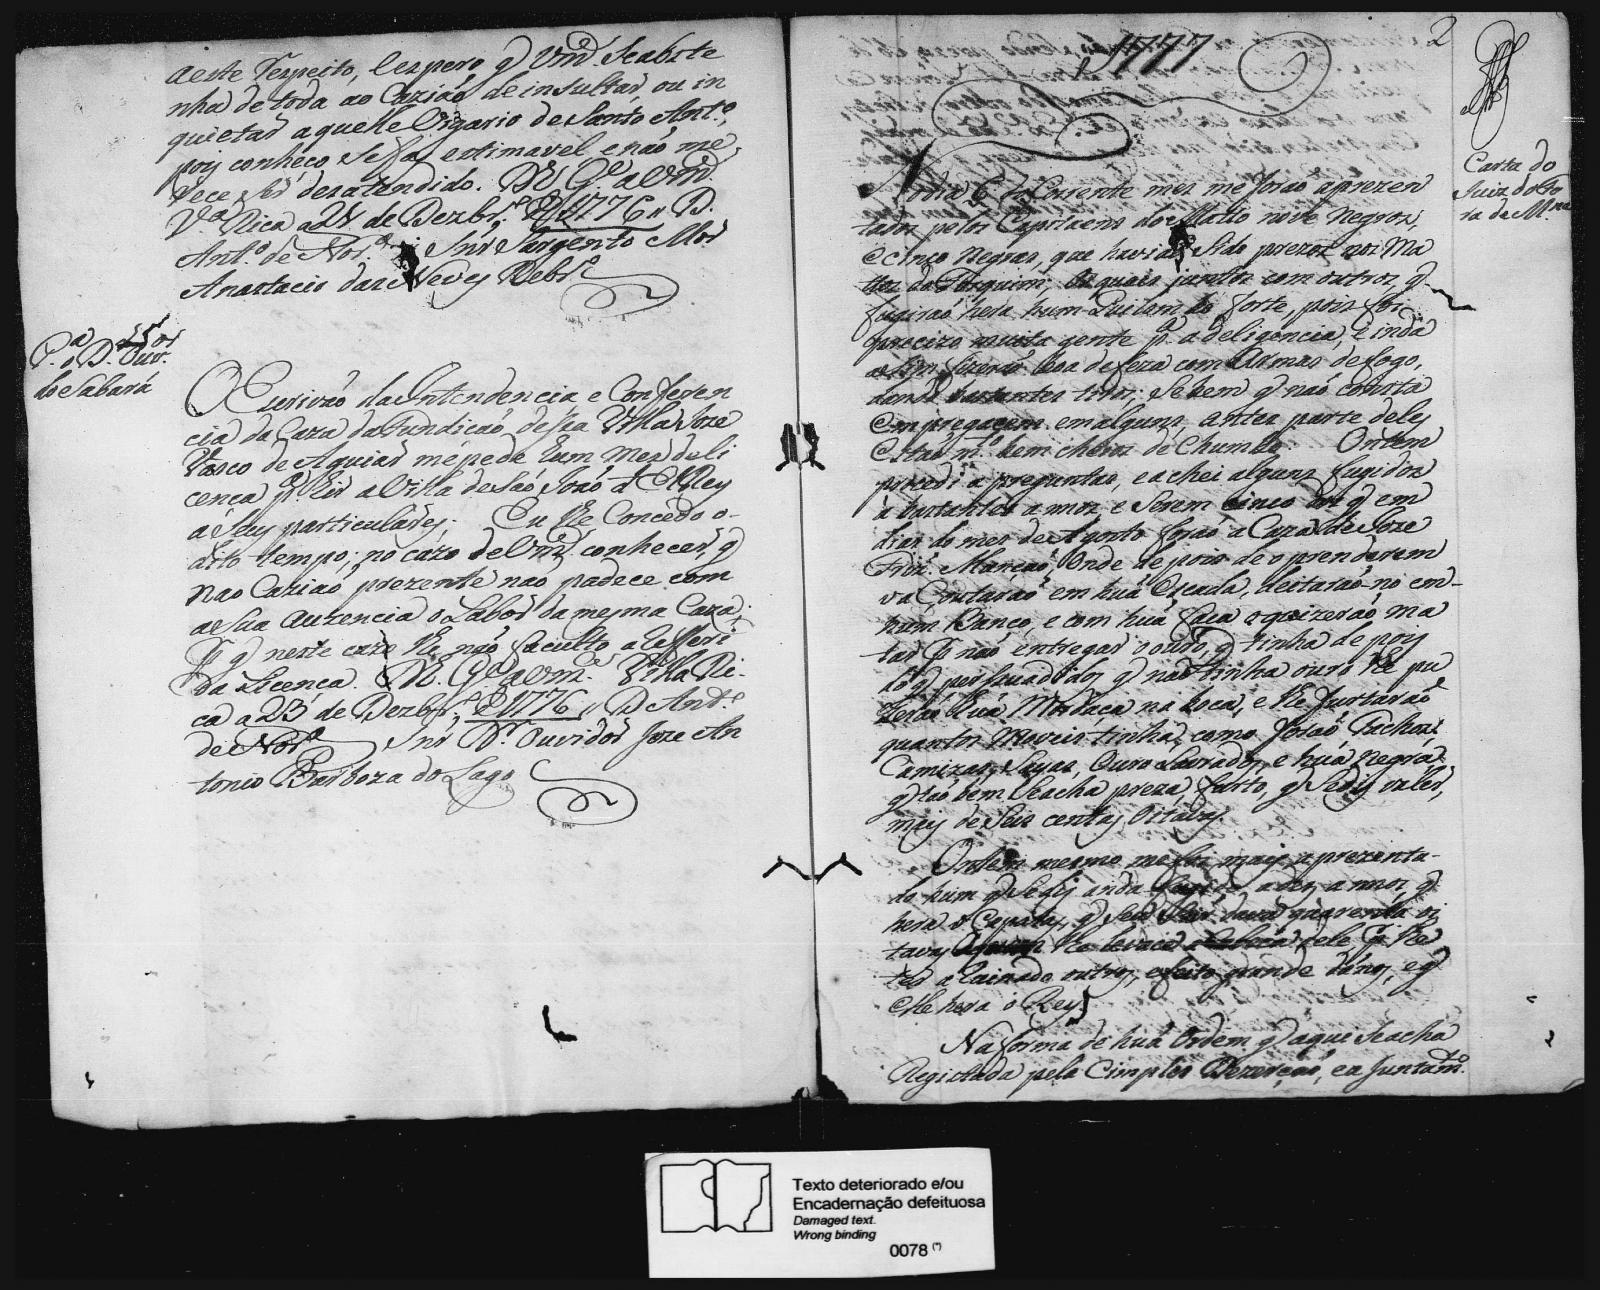 aeste respeito, e espero q̃ Vm.ᶜᵉ Seabste
nha de toda ao Cazião de insultar, ou in
quietar aquelle Vigario de Santo Ant.º,
poys conheço, se faz estimavel, e não me
rece ser desatendido. D.ˢ G.ᵉ a Vm.ᶜᵉ
V.ª Rica a 21 de Dezbr.º de 1776 // D.
Ant.º de Nor.ª Snr Sargento Mor
Anastacio das Neves Rebr.º
P.ª o D.ᵒʳ Ouv.ᵒʳ
do Sabará
O Escrivão da Intendencia e Conferen
cia da Caza da Fundição dessa Villa Joze
Vasco de Aguiar me pede hum mes de li
cença p.ª hir a Villa de São João d'El Rey
a seus particulares; Eu lhe Concedo o
dito tempo; no cazo de Vm.ᶜᵉ conhecer, q̃
na o Cazião prezente nao padece com
a sua auzencia o Labor da mesma Caza;
p.ʳ q̃ neste cazo lhe não faculto a referi
da Licença. D.ˢ G.ᵉ a Vm.ᶜᵉ Villa Ri-
ca a 23 de Dezbr.º de 1776 // D. Ant.º
de Nor.ª Snr D.ʳ Ouvidor Joze An
tonio Barboza do Lago
1777
2
Carta do
Juiz de Fo
ra de M.ⁿᵃ
No dia 6 do Corrente mes me forão aprezen
tados pelos Capitaens do Matto nove Negros,
e cinco Negras, que havião sido prezos nos Ma
ttos do Turquim, os quais juntos com outros, q̃
fugirão hera hum Quilombo forte, pois foi
precizo muita gente p.ª a deligencia, e inda
asim fizerão boa defeza com Armas de fogo,
dando bastantes tiros; Se bem q̃ não consta
empregacem em alguns, antes parte deles
estão m.ᵗᵒ bem cheios de Chumbo. Ontem
procedi a preguntas, e achei alguns fugidos
a bastantes annos, e serem cinco os q̃ em
dias do mes de Agosto forão a Caza de Joze
Friz. Marçao, Onde depois de o prenderem
va Custarão em huã Escada, deitarão-no em
hum Banco, e com huã faca o quizerão ma
tar p.ª não entregar o ouro, q̃ tinha, depoys
lo q̃ perhuadidos q̃ não tinha ouro lhe pu
zerão huã Mordaça na boca, e lhe furtarão
quantos Moveis tinha, como forão Tachos,
Camizas, Sayas, Ouro Lavrado, e huã Negra
q̃ tão bem se acha preza, furto, q̃ se diz valer,
mays de Seis centas Oitavas.
Ontem mesmo me foi mays aprezenta-
do hum q̃ se diz anda fugido a dez annos, q̃
hera o Capataz, q̃ seu Snr. dava quarenta oi
tavas a quem lhe levace a Cabeça dele p.ʳ lhe
ter a Laicado outros, e feito grande dano, e q̃
elle hera o Rey.
Na forma de huã Ordem q̃ aqui se acha
Registada pela Cimples Dezerção, e a Juntam.ᵗᵒ
Texto deteriorado e/ou
Encadernação defeituosa
Damaged text.
Wrong binding
0078 (*)